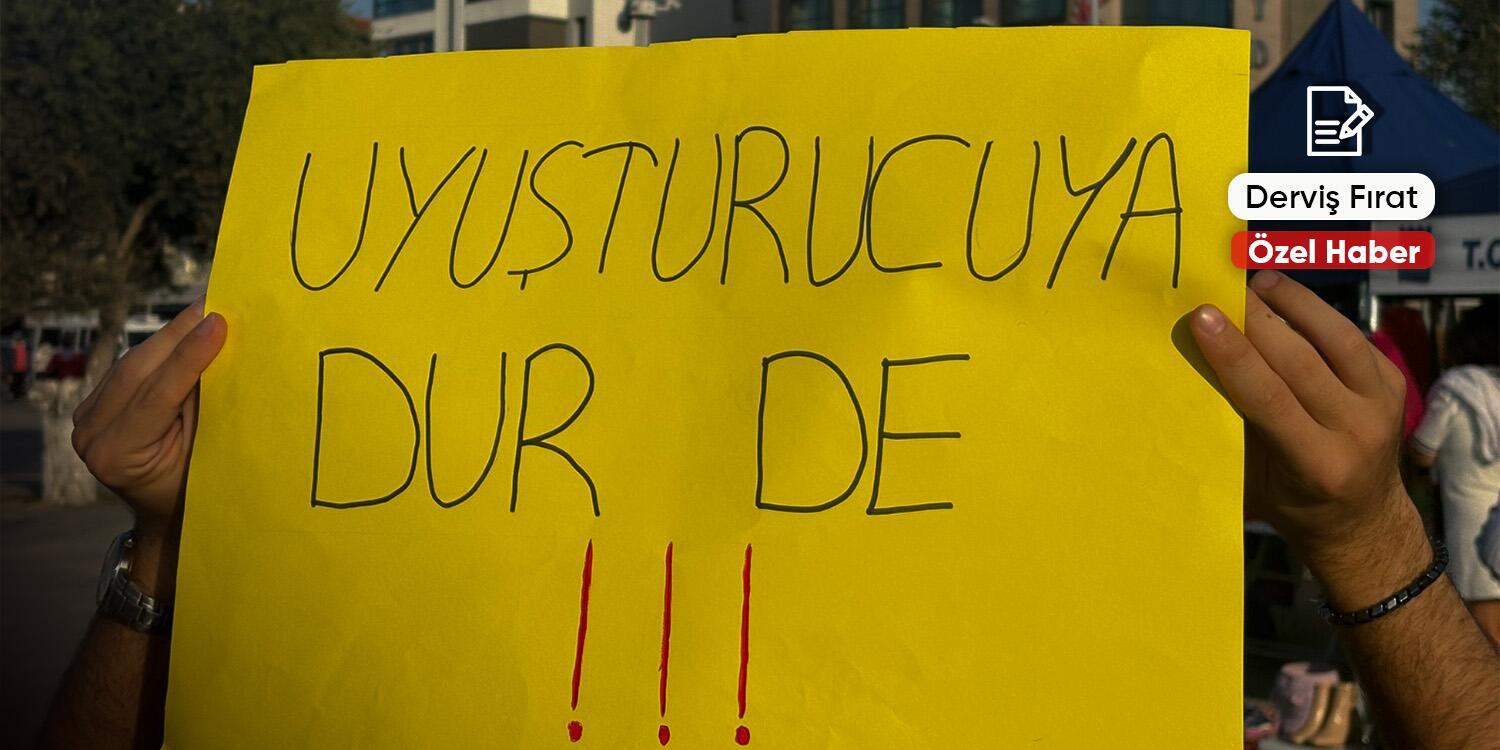 UYUŞTURUCUYA
DUR DE
!!!
Derviş Fırat
Özel Haber